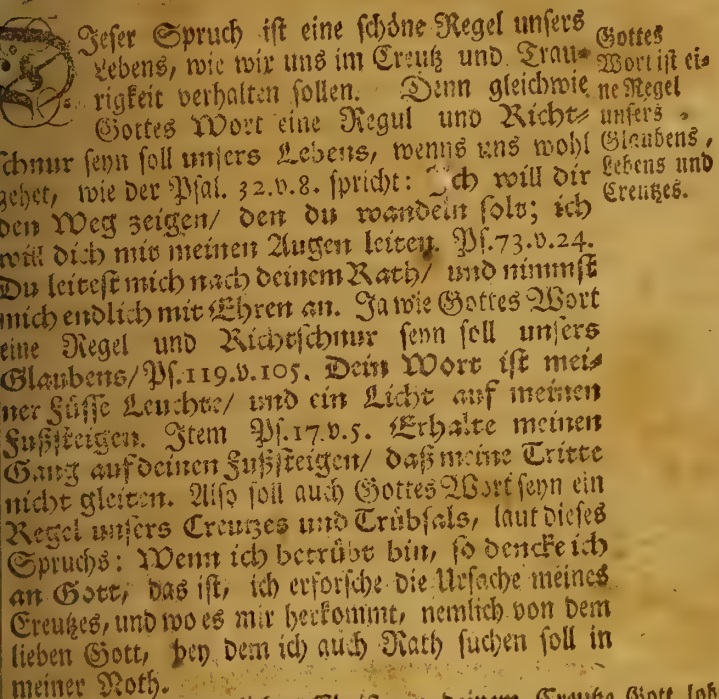 Dieser Spruch ist eine schöne Regel unsers
Lebens, wie wir uns im Creutz und Trau-
rigkeit verhalten sollen. Denn gleichwie
Gottes Wort eine Regul und Richt-
schnur seyn soll unsers Lebens, wenns uns wohl
gehet, wie der Psal. 32.v.8. spricht: Ich will dir
den Weg zeigen/ den du wandeln solt; ich
will dich mit meinen Augen leiten. Ps.73.v.24.
Du leitest mich nach deinem Rath/ und nimmst
mich endlich mit Ehren an. Ja wie Gottes Wort
eine Regel und Richtschnur seyn soll unsers
Glaubens/Ps.119.v.105. Dein Wort ist mei-
ner Füsse Leuchte/ und ein Licht auf meinen
Fußsteigen. Item Ps.17.v.5. Erhalte meinen
Gang auf deinen Fußsteigen/ daß meine Tritte
nicht gleiten. Also soll auch Gottes Wort seyn ein
Regel unsers Creutzes und Trübsals, laut dieses
Spruchs: Wenn ich betrübt bin, so dencke ich
an Gott, das ist, ich erforsche die Ursache meines
Creutzes, und wo es mir herkommt, nemlich von dem
lieben Gott, bey dem ich auch Rath suchen soll in
meiner Noth.
deinem Creutze Gott lob
Gottes
Wort ist ei-
ne Regel
unsers
Glaubens,
Lebens und
Creutzes.